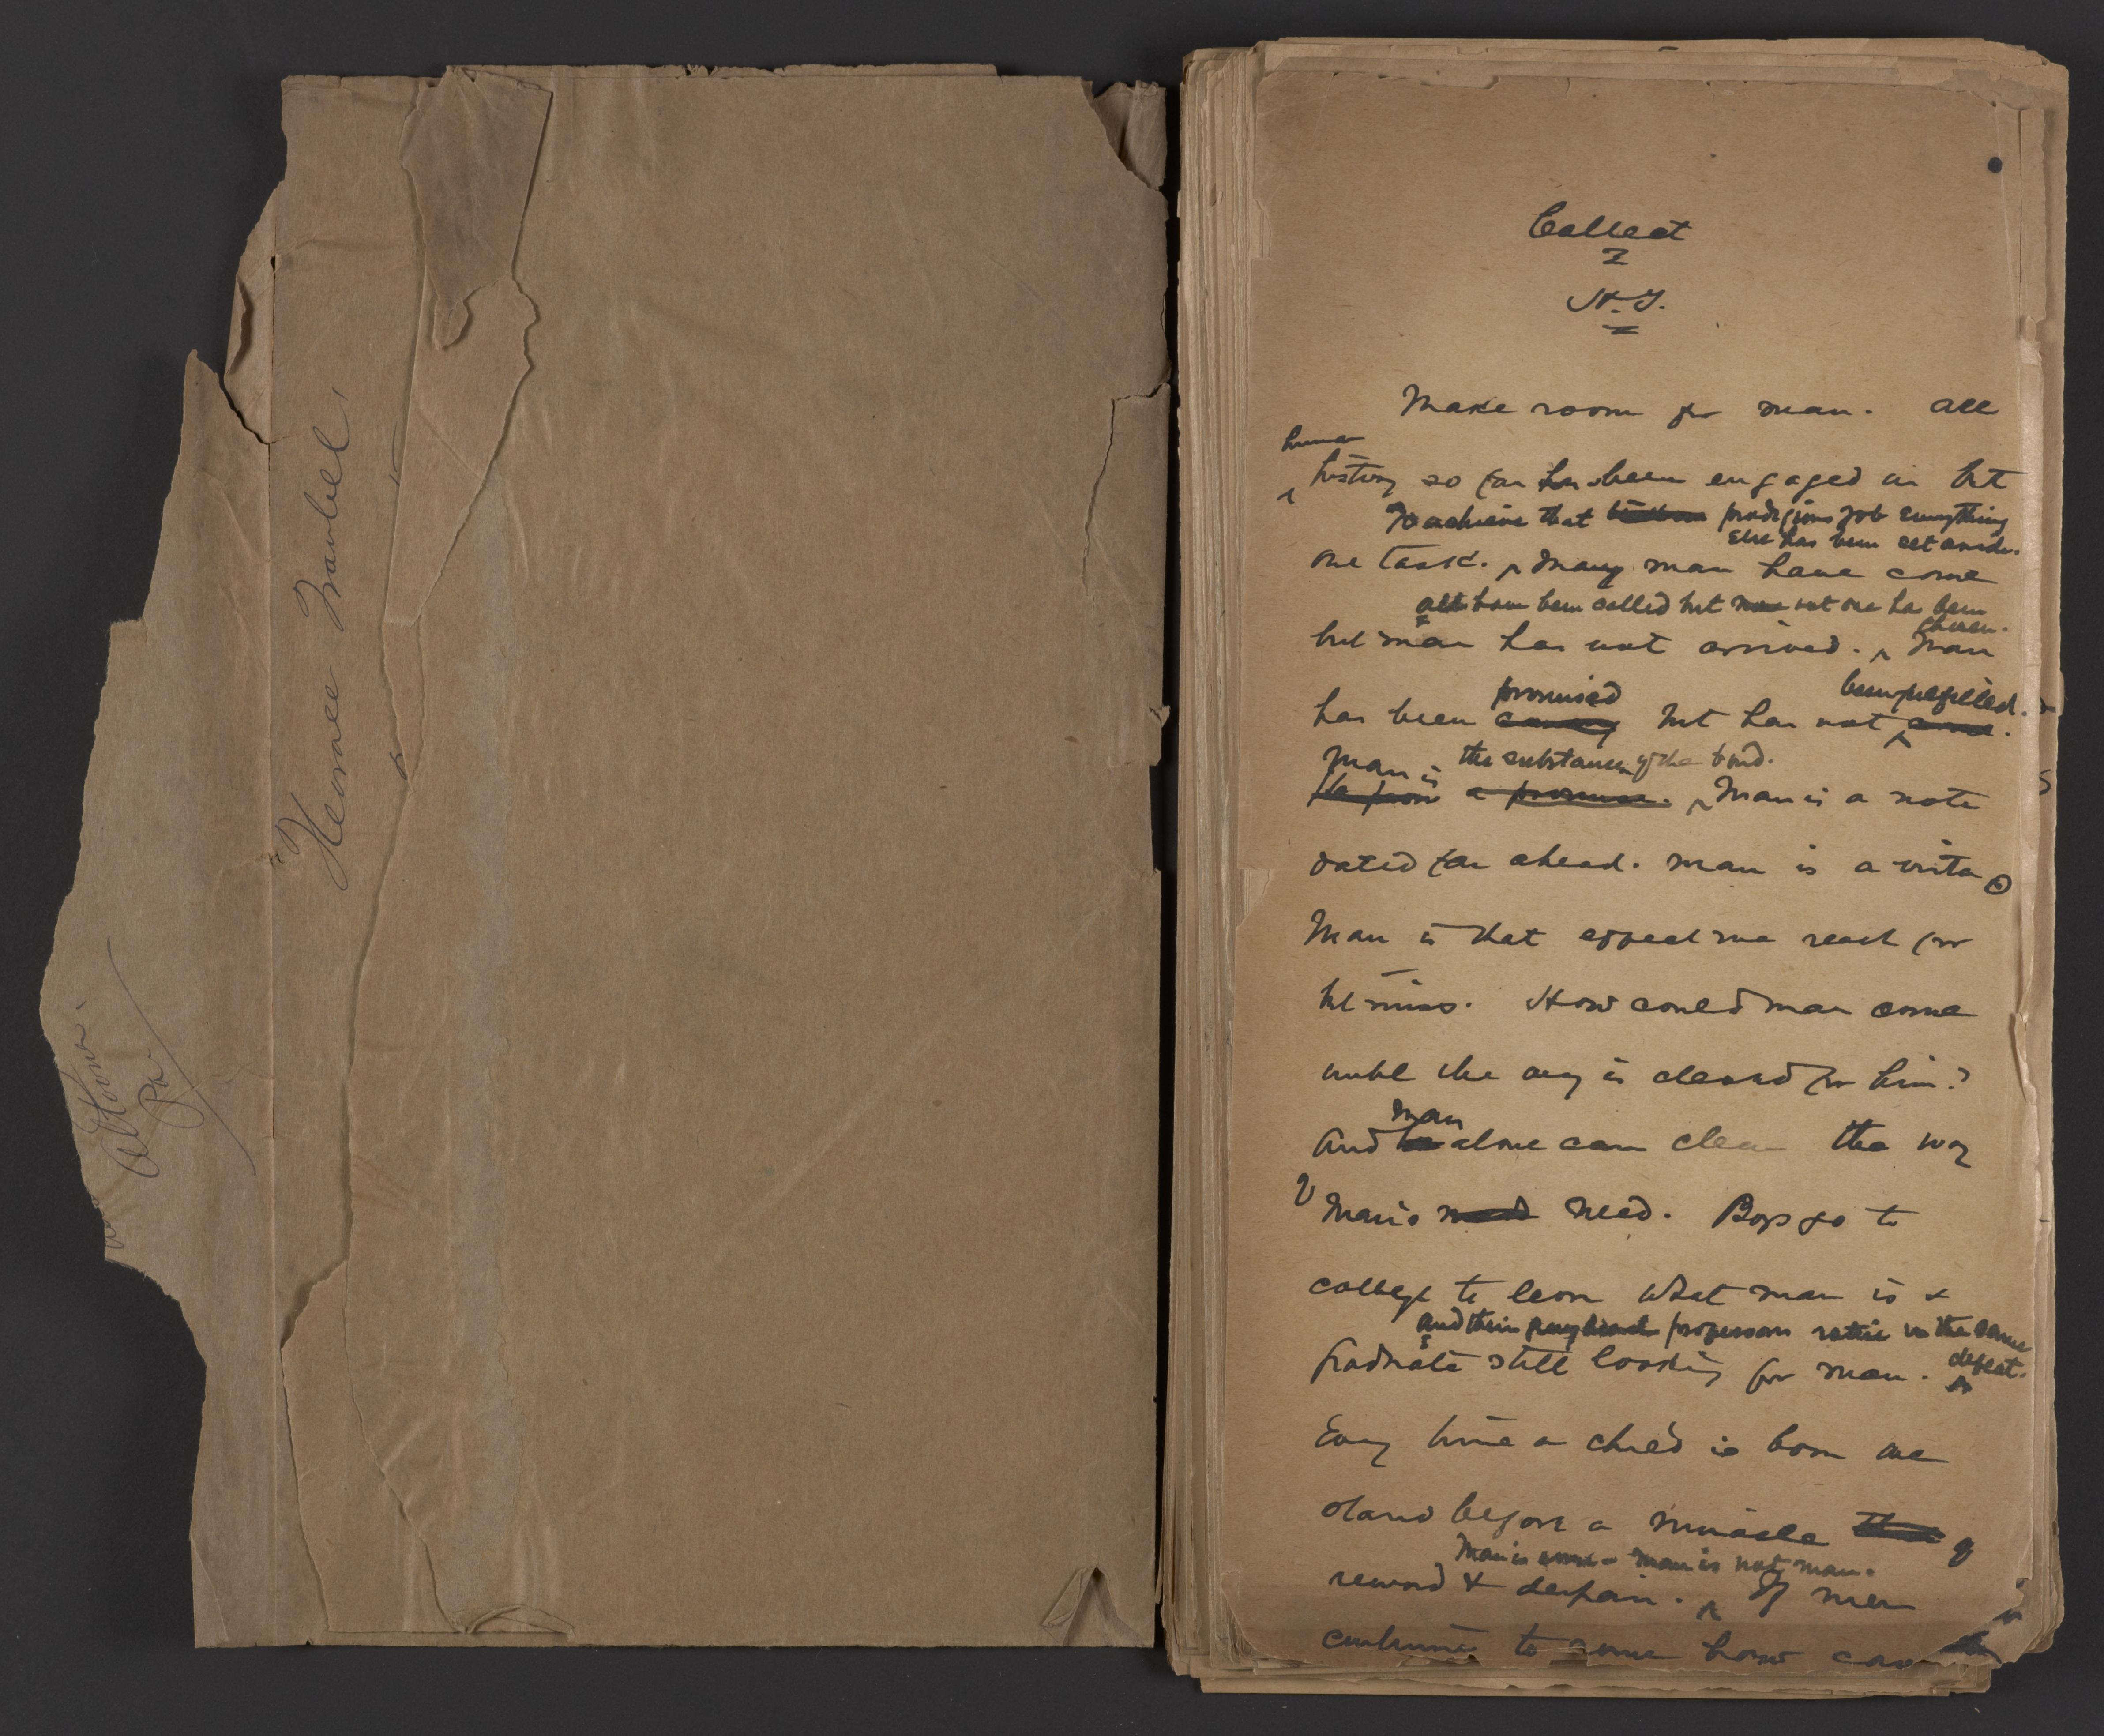 Horace Traubel,
Altoona
Pa
Collect
H. T.
Make room for man. All
human
history so far has been engaged in but
To achieve that prodigious job everything
else has been set aside.
one task. Many men have come
all have been called but not one has been
chosen.
but man has not arrived. Man
promised been fulfilled.
has been but has not
Man is the substance of the bond.
He a promise. Man is a note
dated far ahead. Man is a vista
Man is that effect we reach for
but miss. How could man come
until the way is cleared for him?
man
And he alone can clear the way
Man is need need. Boys go to
college to learn what man is &
and their professors retire in the same
defeat.
graduate still looking for man.
Every time a child is born we
stand before a miracle of
Man is come - man is not man.
reward & despair. If men
continues to come how can